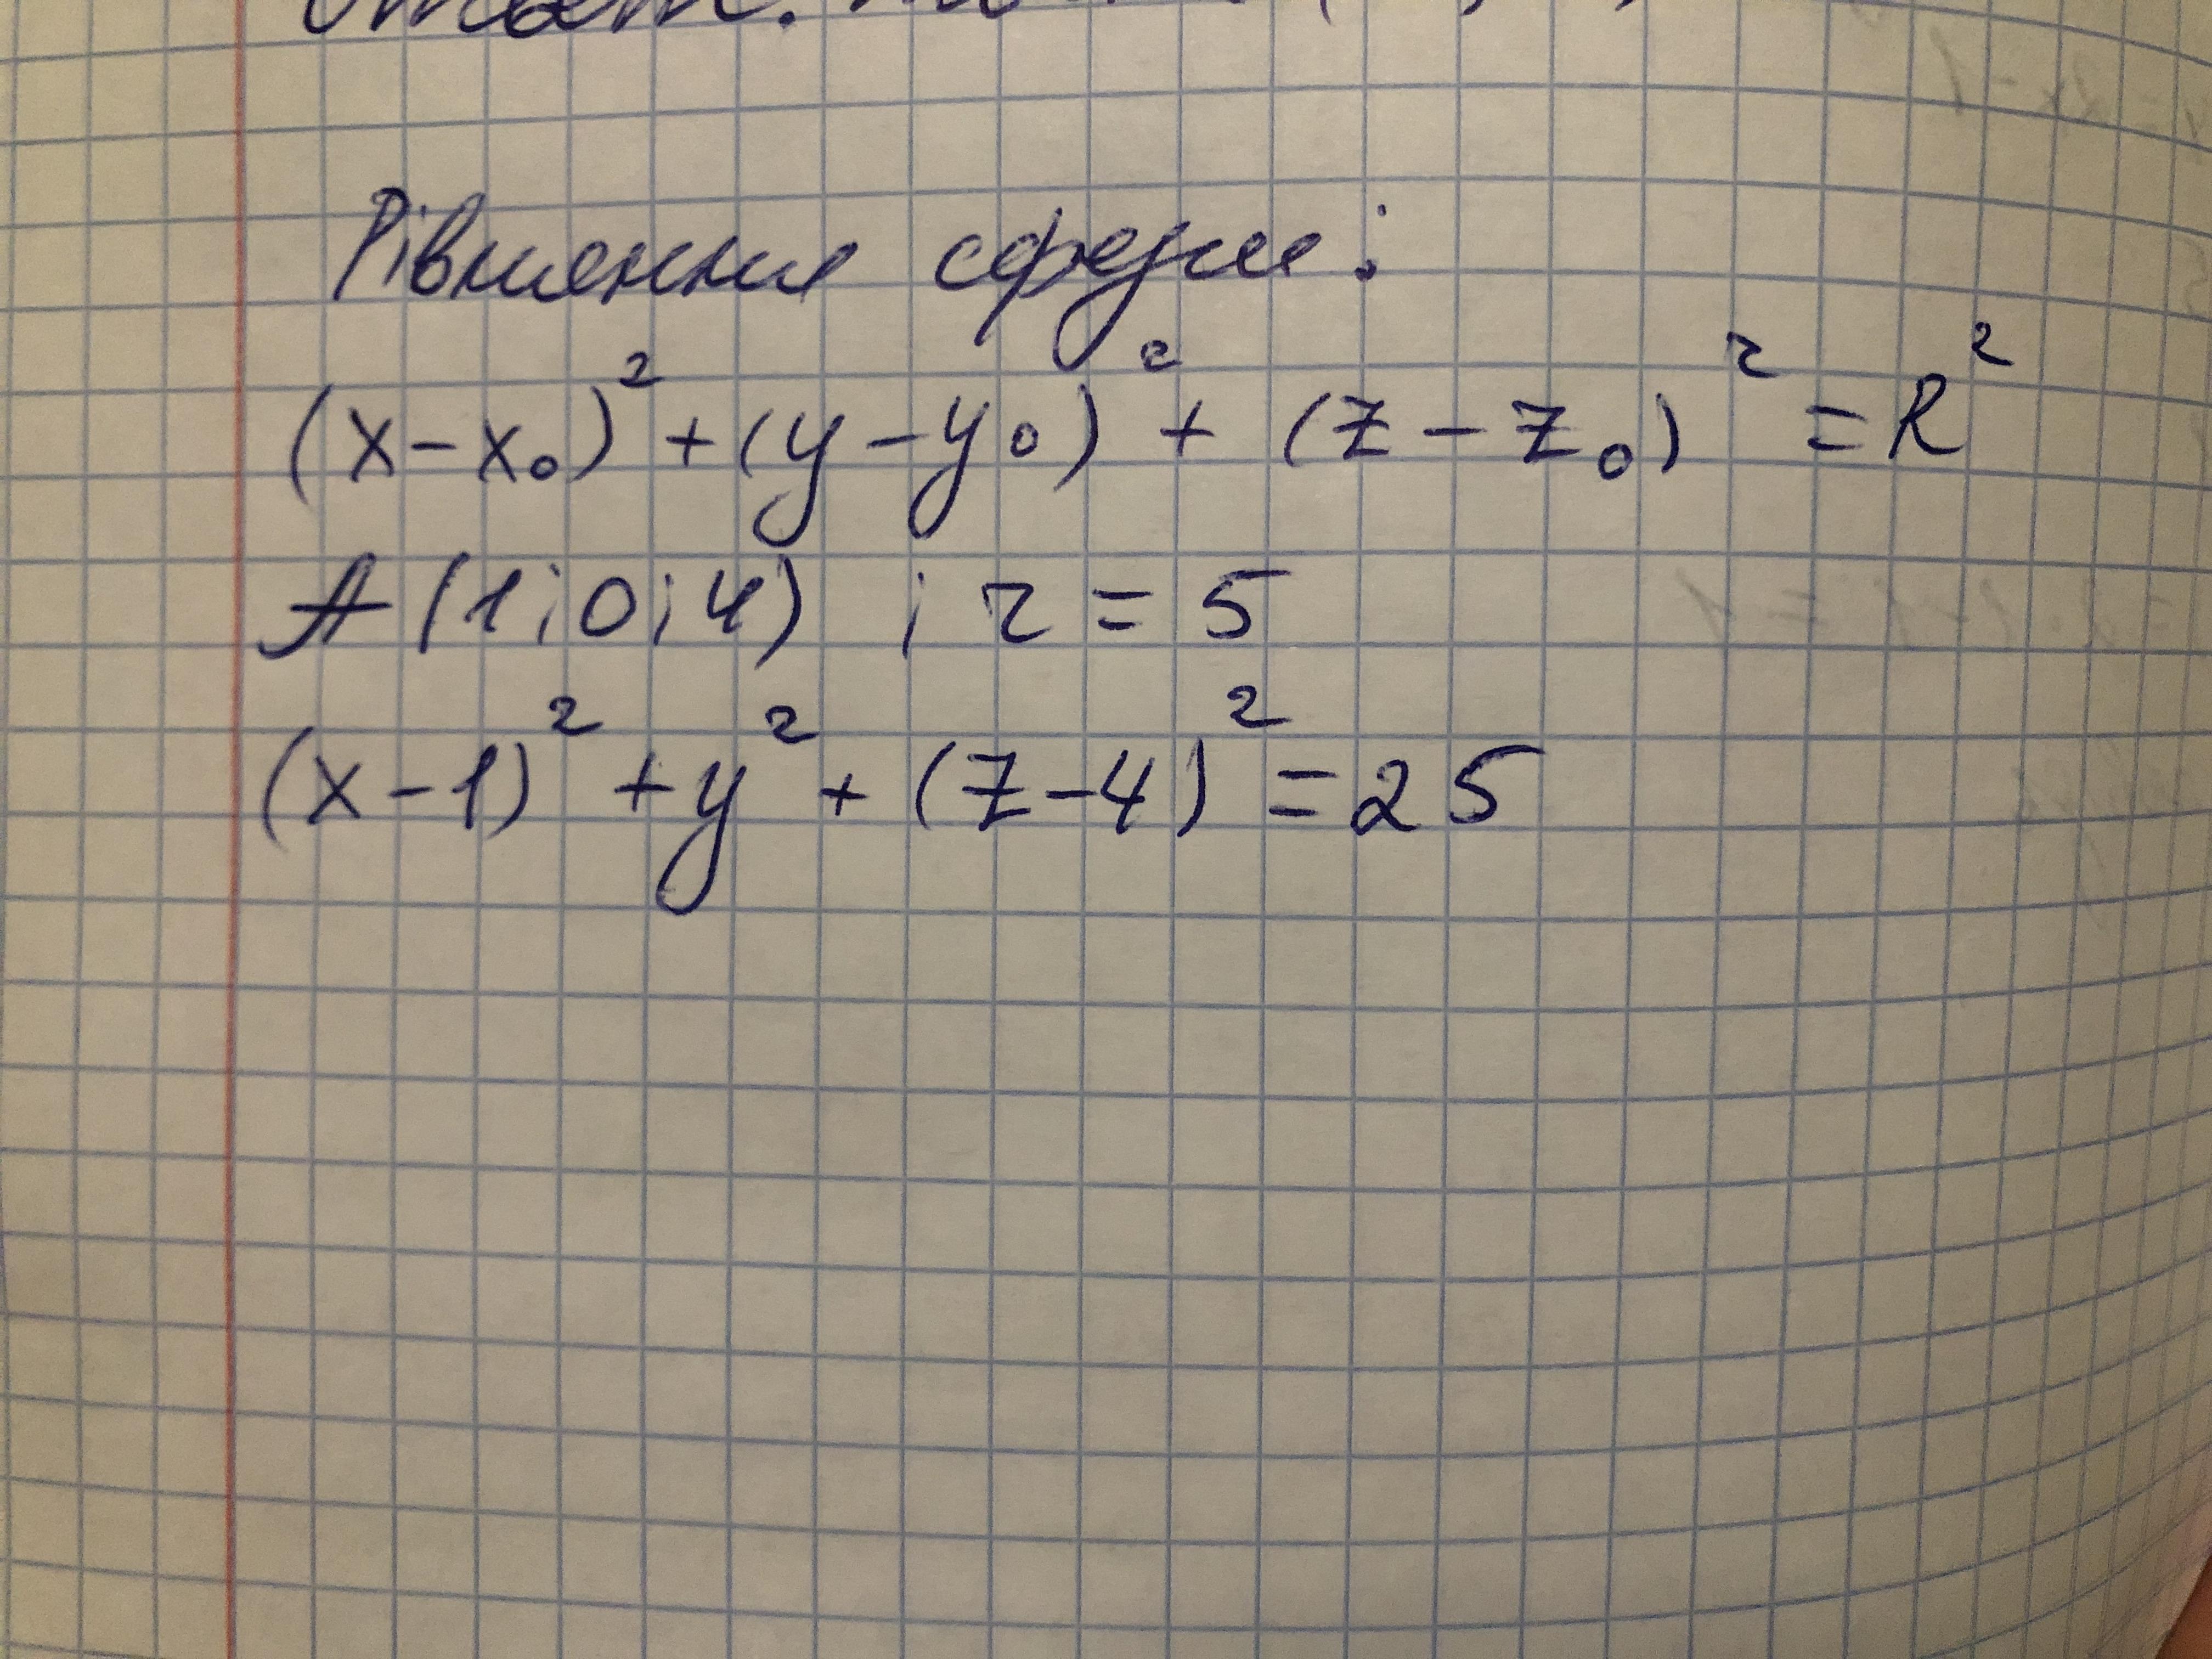 Рівняння сфери:
(x-x₀)² + (y-y₀)² + (z-z₀)² = R²
A(1;0;4) ; r = 5
(x-1)² + y² + (z-4)² = 25